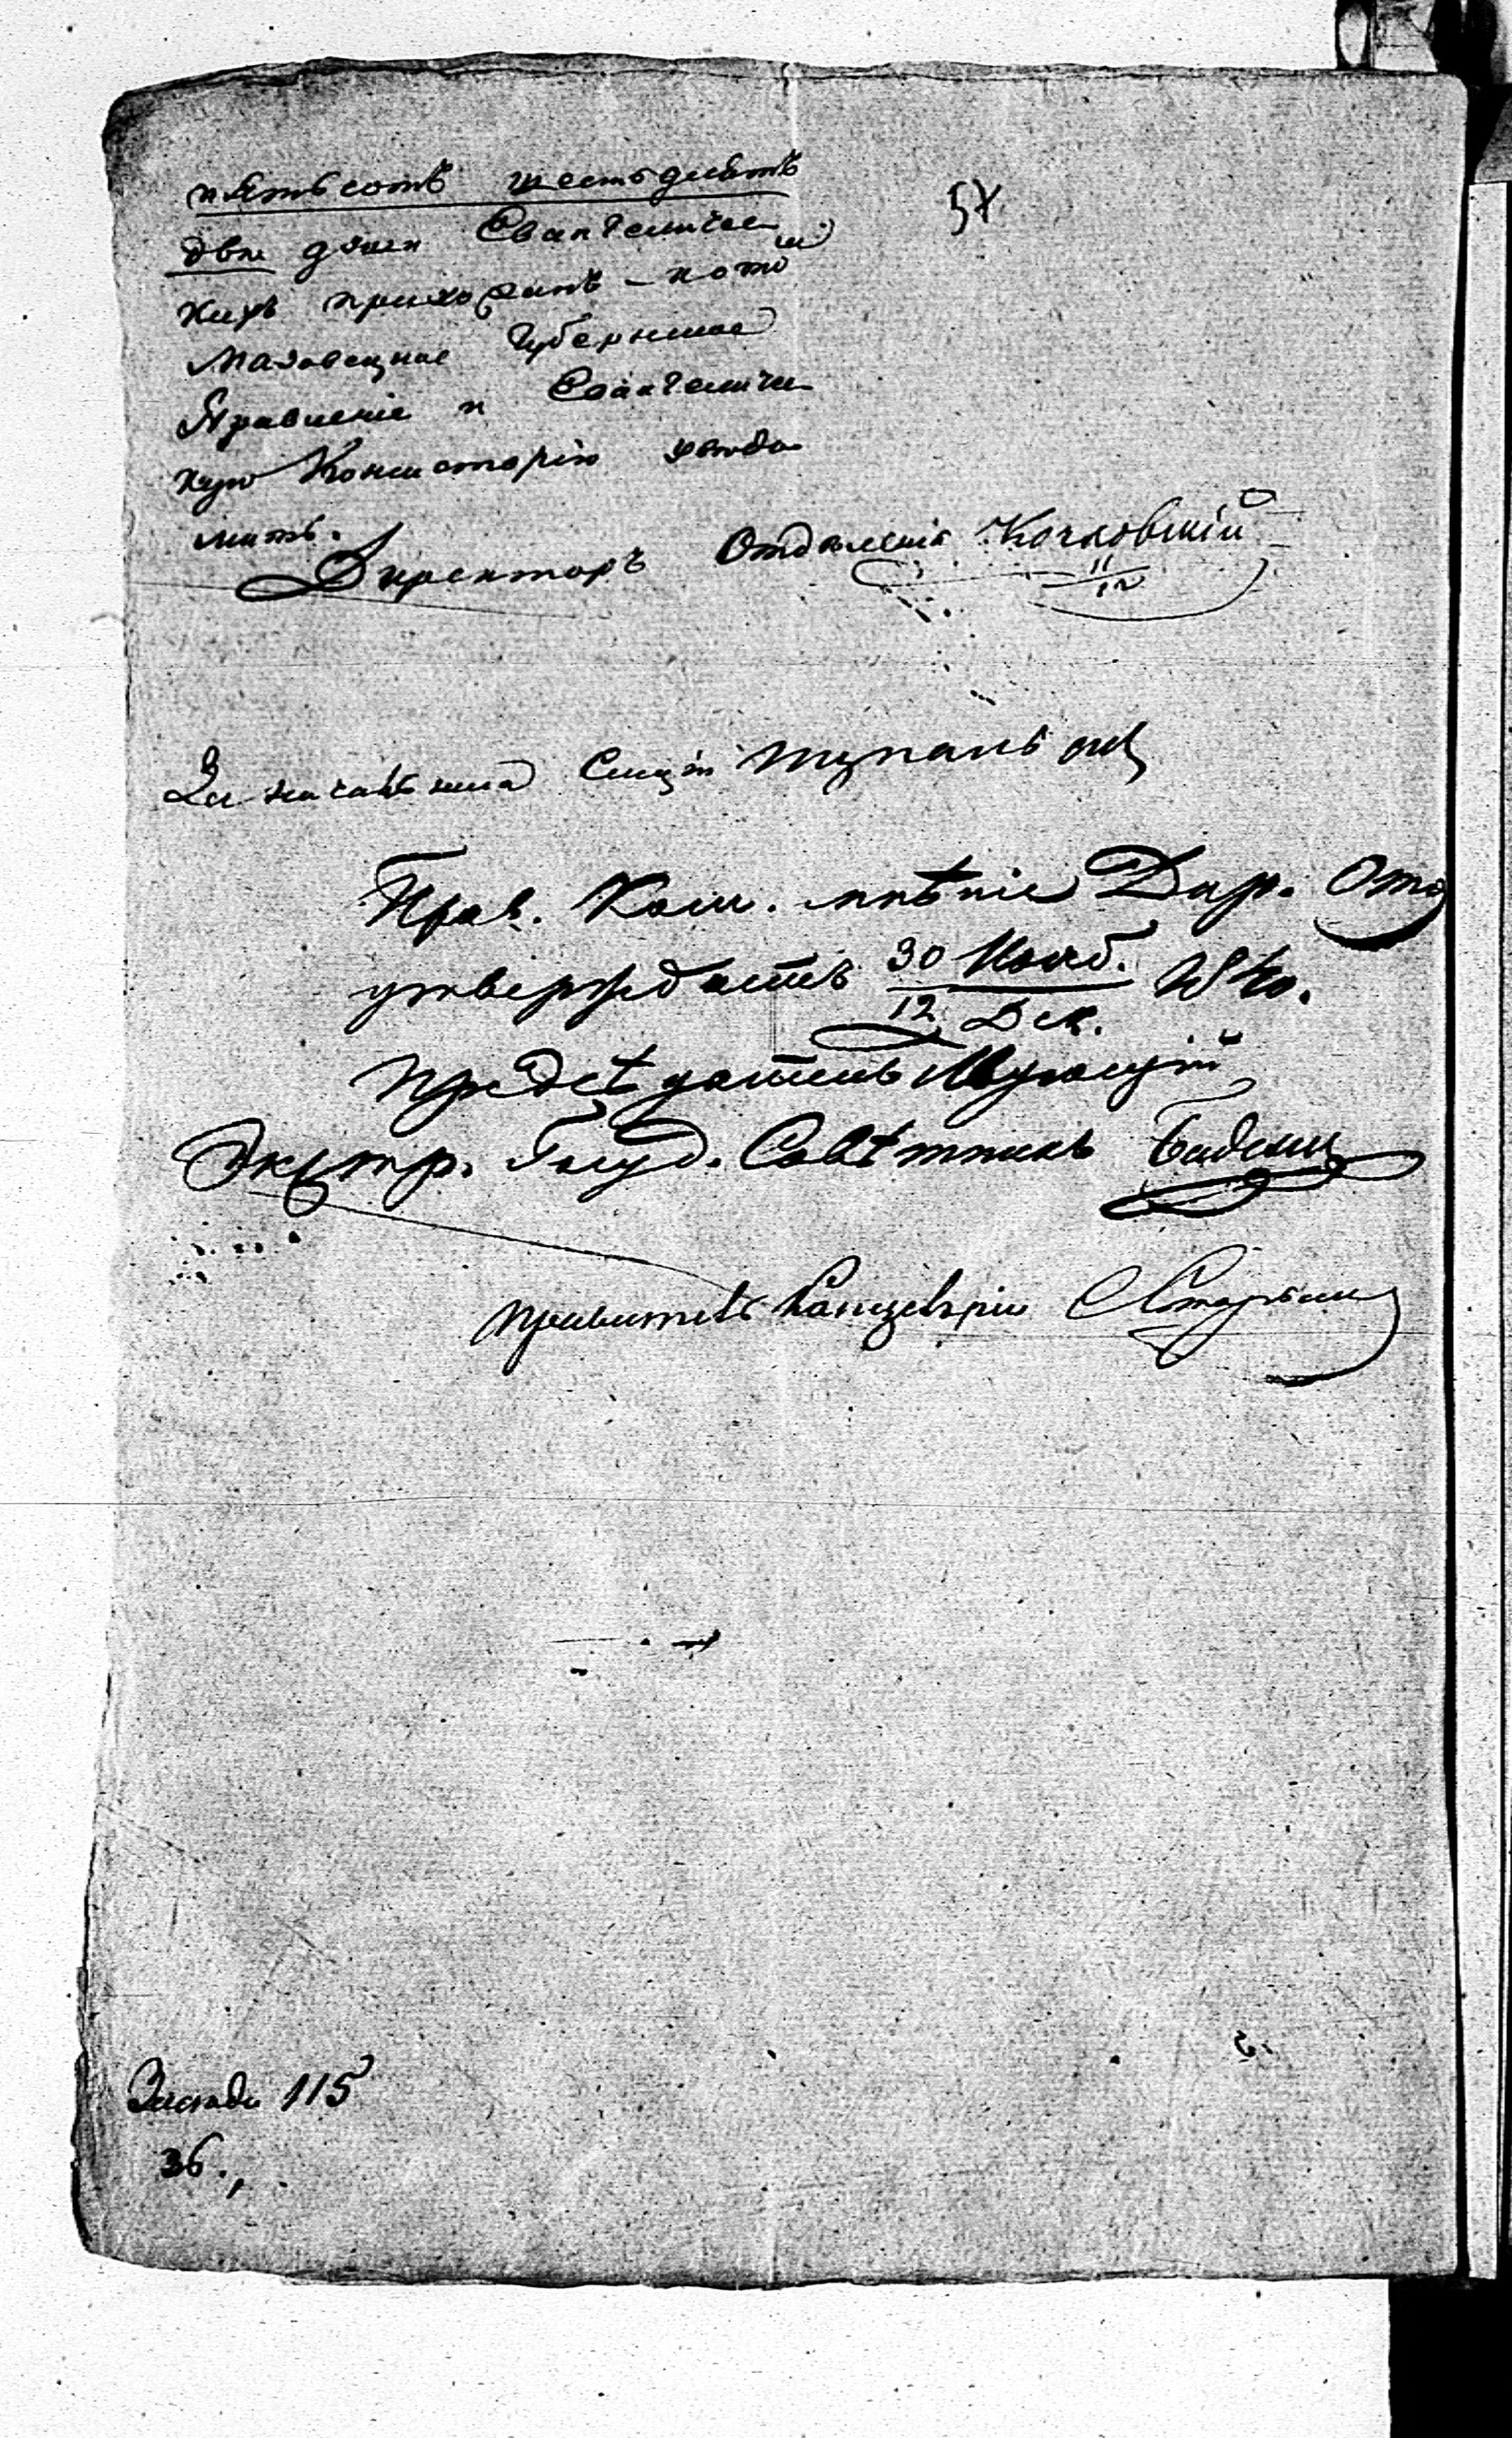 57
пятьсотъ шестьдесятъ
двѣ души Евангеличес
кихъ прихожанъ – о томъ
Мазовецкое Губернское
Правленіе и Евангеличес
кую Консисторію увѣдо
мить.
Директоръ Отдѣленія Кочковскій
11/12
За начальника Секціи
Прав. Ком. мнѣніе Дир. Отд
утверждаетъ 30 Нояб./12 Дек. 1840.
Предсѣдательствующій
Экстр. Госуд. Совѣтникъ
Правитель Канцеляріи
115
36.